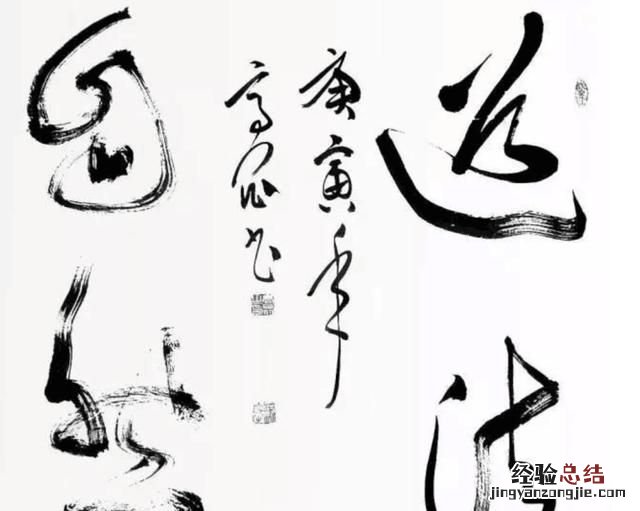 道法
庚寅年
高书
自然
经验总结
jingyanzongjie.com